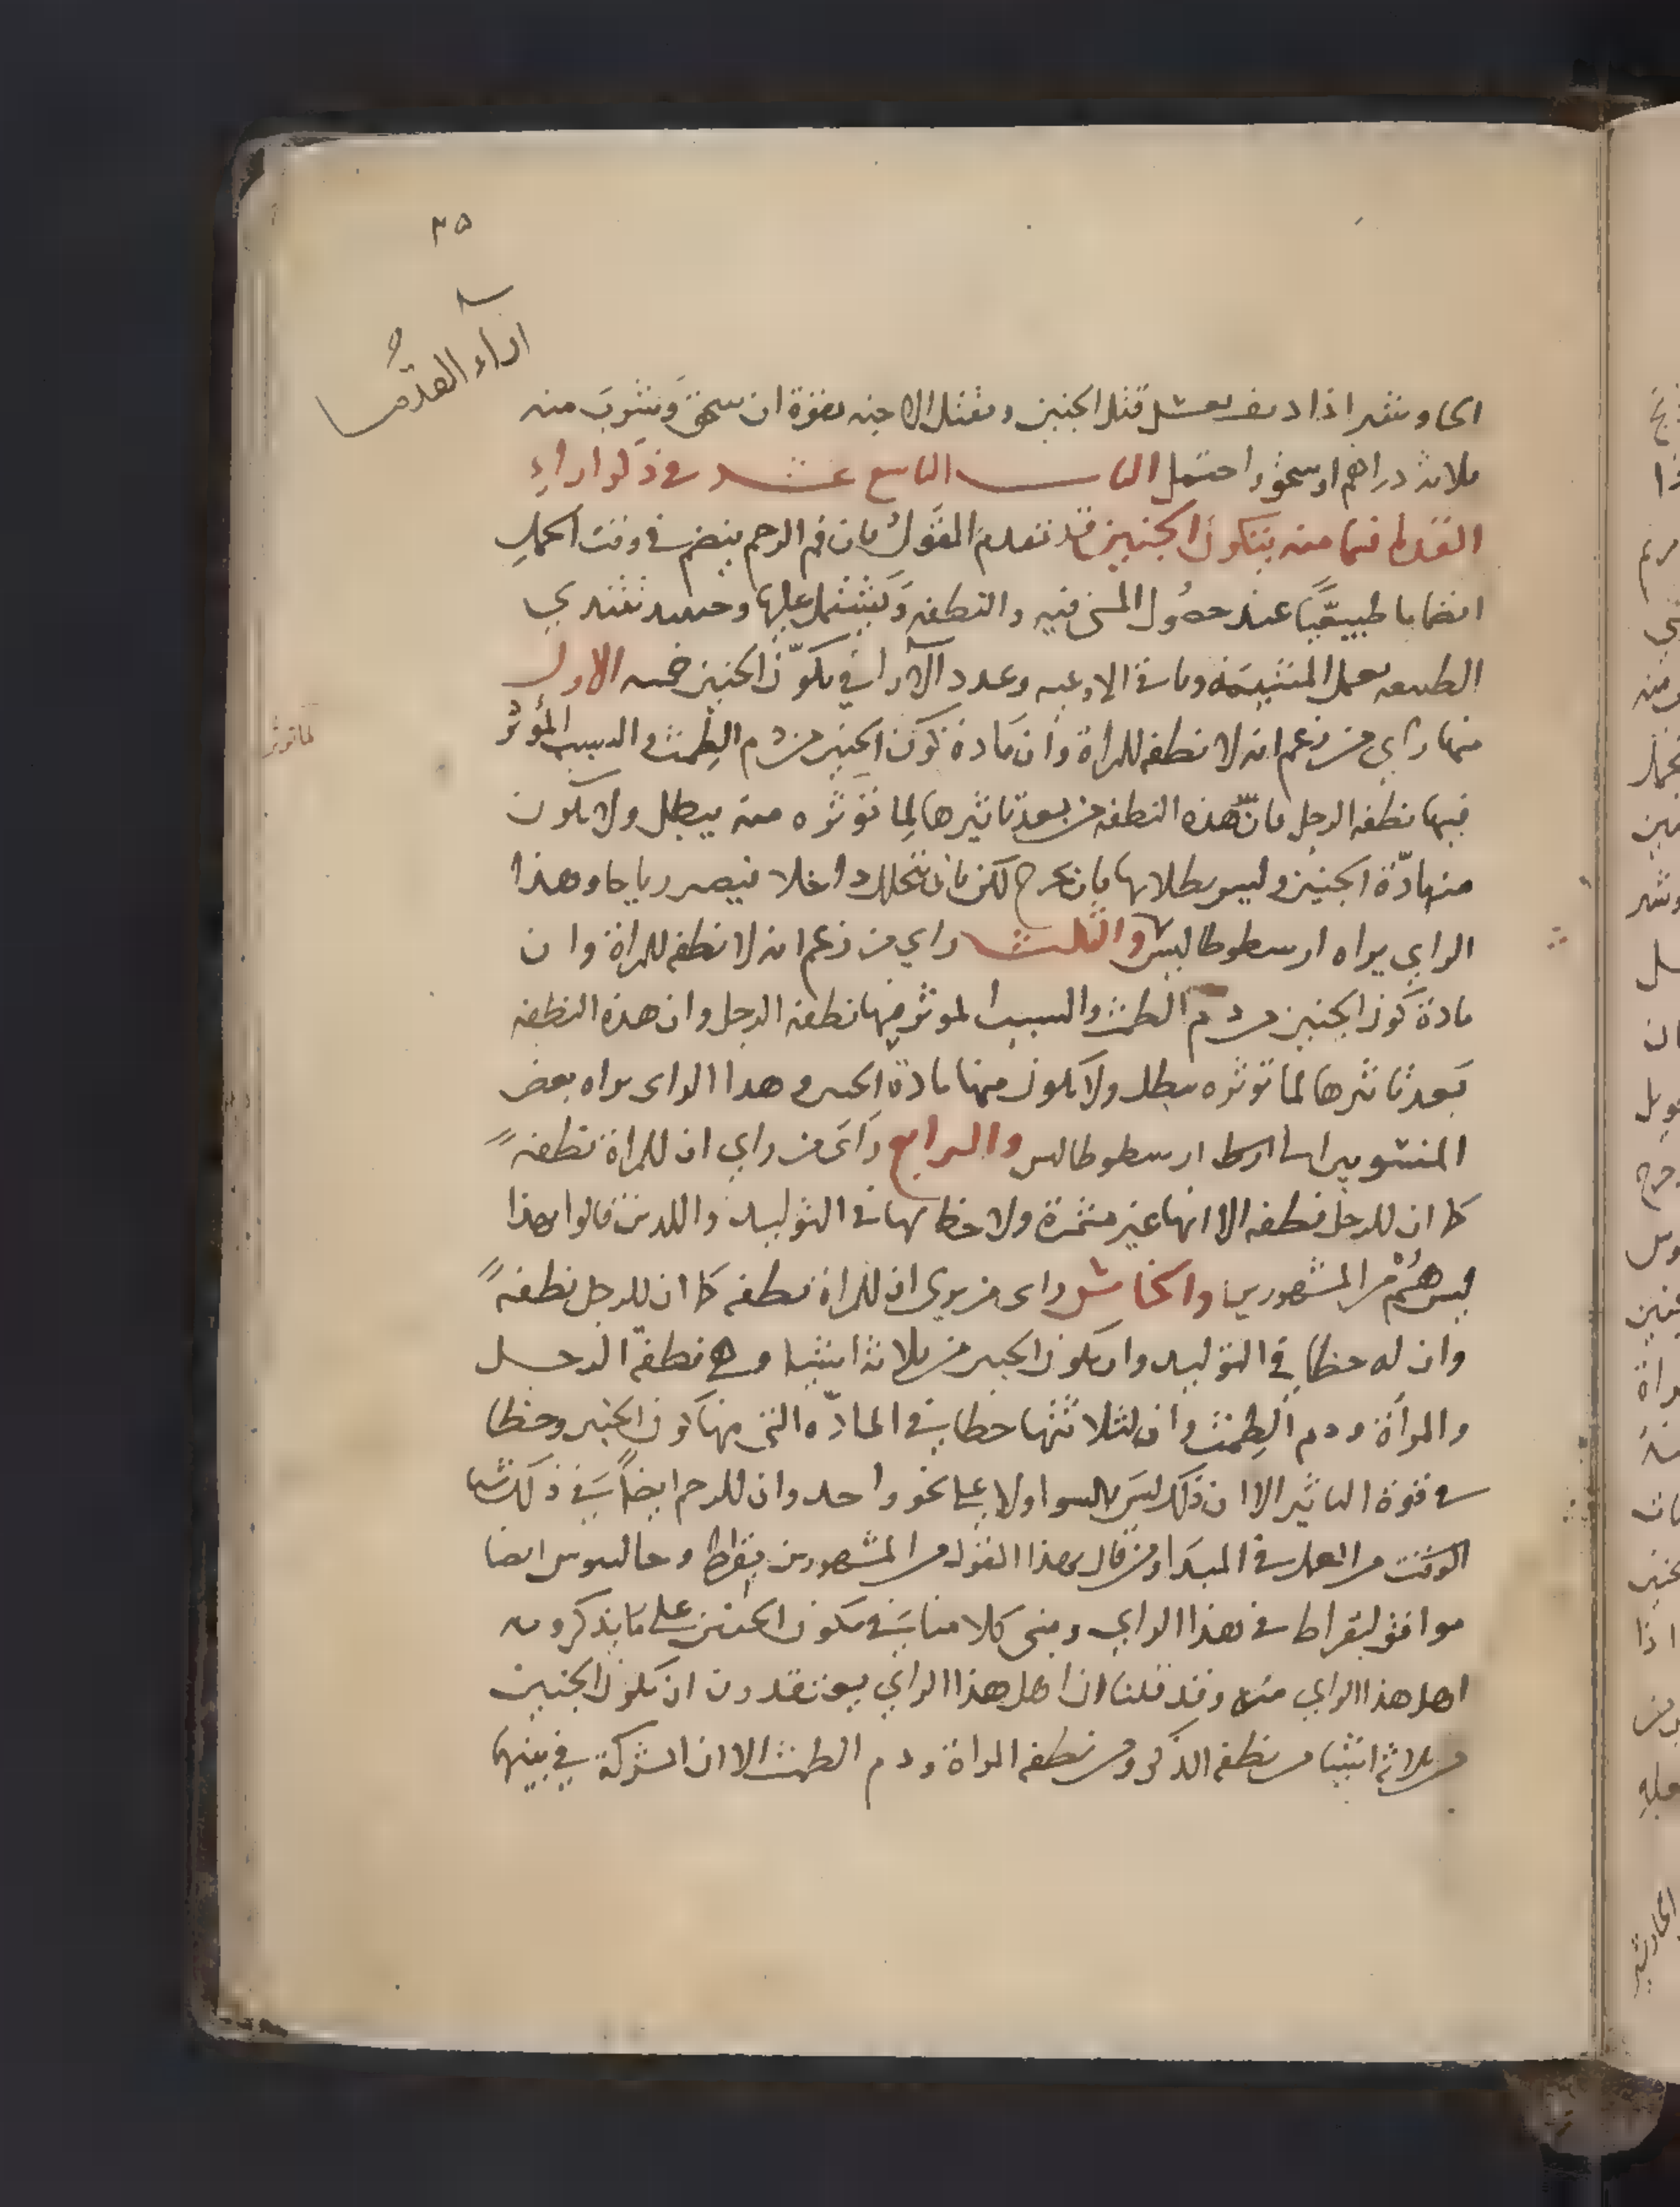 ٣٥
آراء القدما
الجاوشير اذا ديف بعسل قتل الجنين ويقتل الاجنه بقوة ان سحق وشرب منه
ثلاثة دراهم او سحق واحتمل الباب التاسع عشر في ذكر اراءِ
القدما فيما منه يتكون الجنين قد تقدم القول بان فم الرحم ينضم في وقت الحمل
انضماما طبيعيًّا عند حصُول المنى فيه والنطفه وَيشتمل عليها وحينيد تبتدي
الطبيعه بعمل المشيمَة وباقي الاوعيه وعدد الآرا في تكوّن الجنين خمسه الاول
منها راي من زعم انه لا نطفه للمراة وان مَادة كون الجنين من دم الطِمث والسبب المؤثر
لما توثر
فيها نطفه الرجل فانّ هذه النطفه من بعد تاثيرها لِما توثره منه يبطل ولا يكون
منها مادّة الجنين وليس بطلانها بان تخرج لكن بان تتحلل داخلا فيصير رياحا وهذا
الراي يراه ارسطوطاليس والثلث راي من زعم انه لا نطفه للمراة وان
مادة كون الجنين من دم الطمث والسبب الموثر فيها نطفة الرجل وان هذه النطفه
بَعد تاثيرها لما توثره يبطل ولا يكون منها مادة الجنين وهذا الراى يراه بعض
المنسوبين الى ارسطوطاليس والرابع رَاى من راي ان للمراة نطفه
كما ان للرجل نطفه الا انها غير مثمرة ولا حظ لها في التوليد واللذين قالوا بهذا
ليس هُم من المشهورين والخامس راى من يرى ان للمراة نطفه كما ان للرجل نطفه
وان له حظا في التوليد وان يكون الجنين من ثلاثة اشيا وهي نطفة الرجل
والمرأة ودم الطِمث وان لثلاثتها حظا في المادّه التي منها كون الجنين وحظا
في قوة التاثير الا ان ذلك ليسَ بالسوا ولا على نحو واحد وان للرحم ايضاً في ذلك
الوقت من العمل في المبدَا ومن قال بهذا القول من المشهورين بقراط وجالينوس ايضا
موافق لبقراط في هذا الراي ونبنى كلامنا في تكون الجنين على ما يذكرونه
اهل هذا الراي منه وقد قلنا ان اهل هذا الراي يعتقدون ان يكون الجنين
من ثلاثة اشيا من نطفه الذكر ومن نطفه المراة ودم الطمث الا ان الشركة في بينها